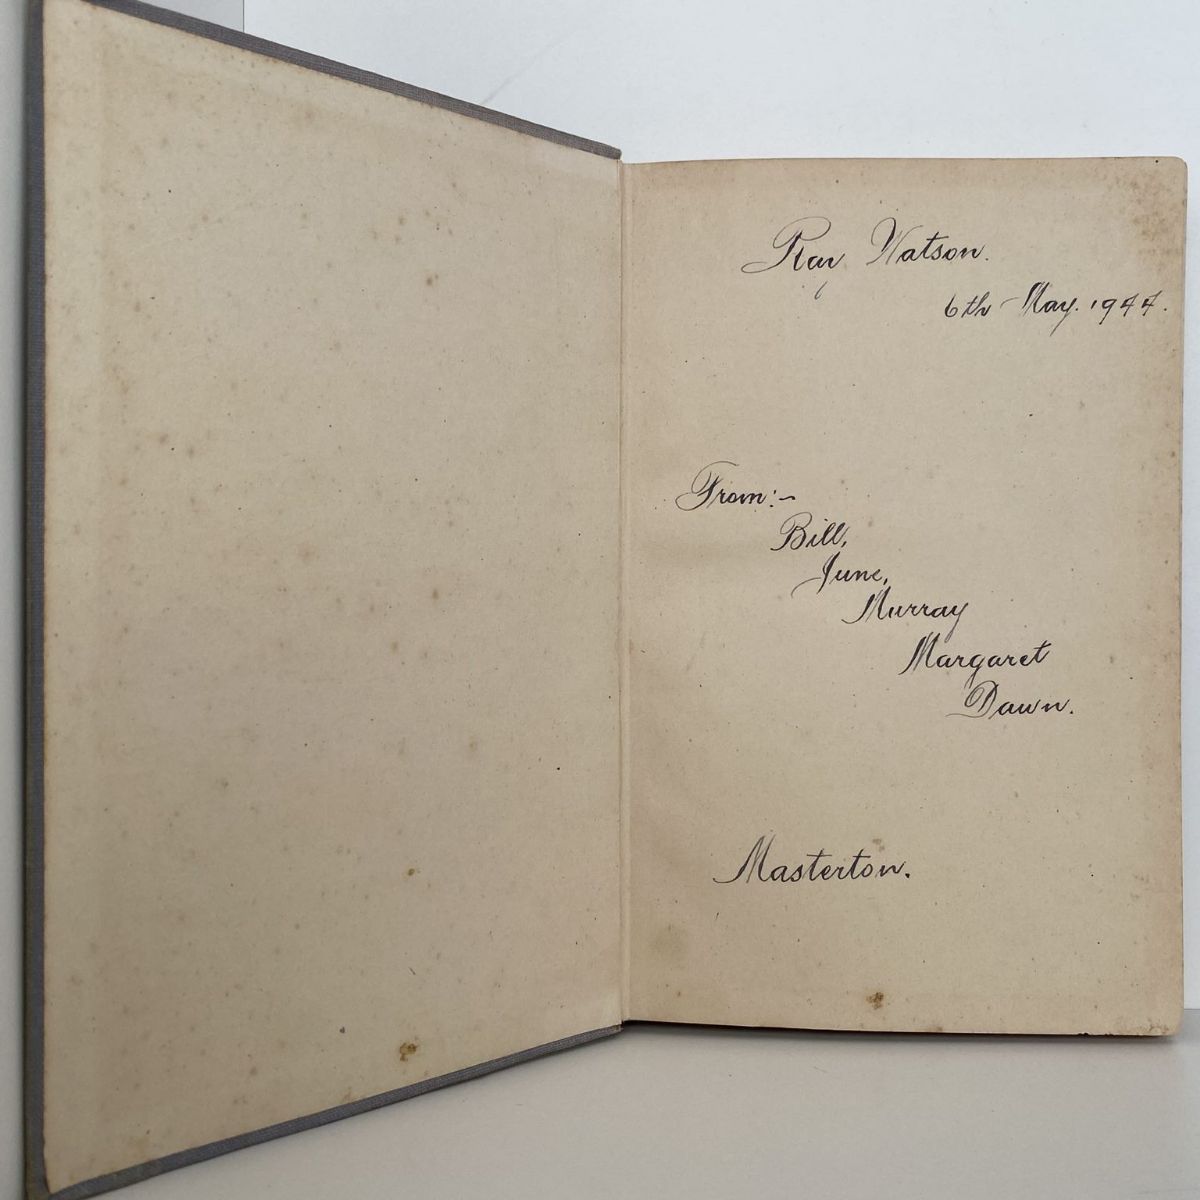 Ray Watson.
6th May. 1944.
From:-
Bill,
June,
Murray
Margaret
Dawn.
Masterton.